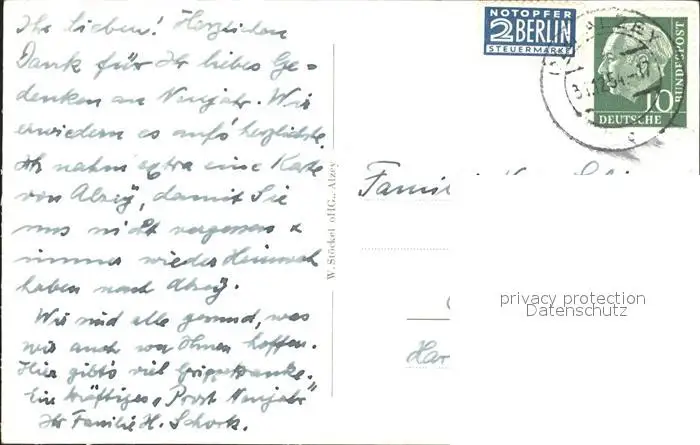 Ihr lieben! Herzlichen
Dank für Ihr liebes Ge=
denken an Neujahr. Wir
erwiedern es aufs herzlichste.
Ich nahm extra eine Karte
von Alzey, damit Sie
uns nicht vergessen &
immer wieder Heimweh
haben nach Alzey.
Wir sind alle gesund, was
wir auch von Ihnen hoffen.
Hier gibt's viel Grippekranke.
Ein kräftiges „Prost Neujahr"
Ihr Familie H. Schork.
W. Stöckel oHG., Alzey
NOTOPFER
2 BERLIN
STEUERMARKE
ALZEY
10
DEUTSCHE
BUNDESPOST
Famil
Har
privacy protection
Datenschutz